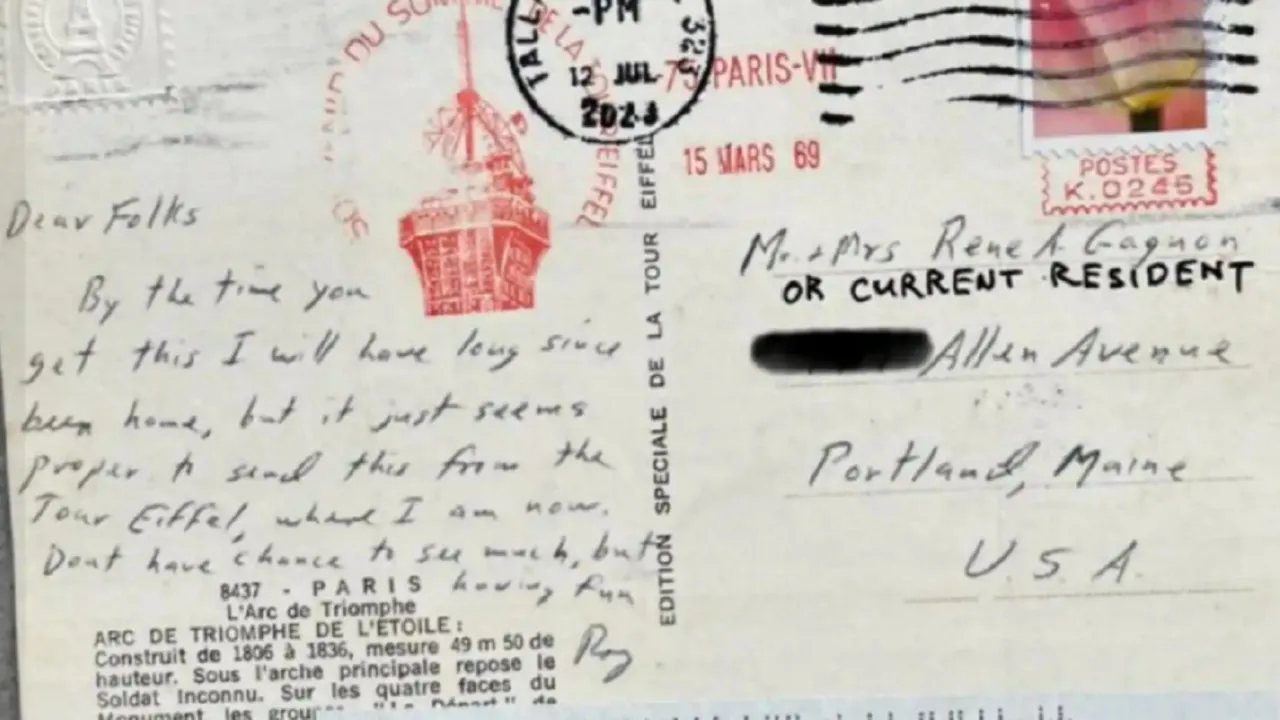 DU SOMMET DE LA TOUR EIFFEL
TALL
-PM
12 JUL
2023
75 PARIS-VII
15 MARS 69
POSTES
K.0245
Dear Folks
By the time you
get this I will have long since
been home, but it just seems
proper to send this from the
Tour Eiffel, where I am now.
Dont have chance to see much, but
having fun
Roy
8437 - PARIS
L'Arc de Triomphe
ARC DE TRIOMPHE DE L'ETOILE :
Construit de 1806 à 1836, mesure 49 m 50 de
hauteur. Sous l'arche principale repose le
Soldat Inconnu. Sur les quatre faces du
Monument les "Le Départ" de
EDITION SPECIALE DE LA TOUR EIFFEL
Mr. + Mrs Rene A. Gagnon
OR CURRENT RESIDENT
Allen Avenue
Portland, Maine
U S A.